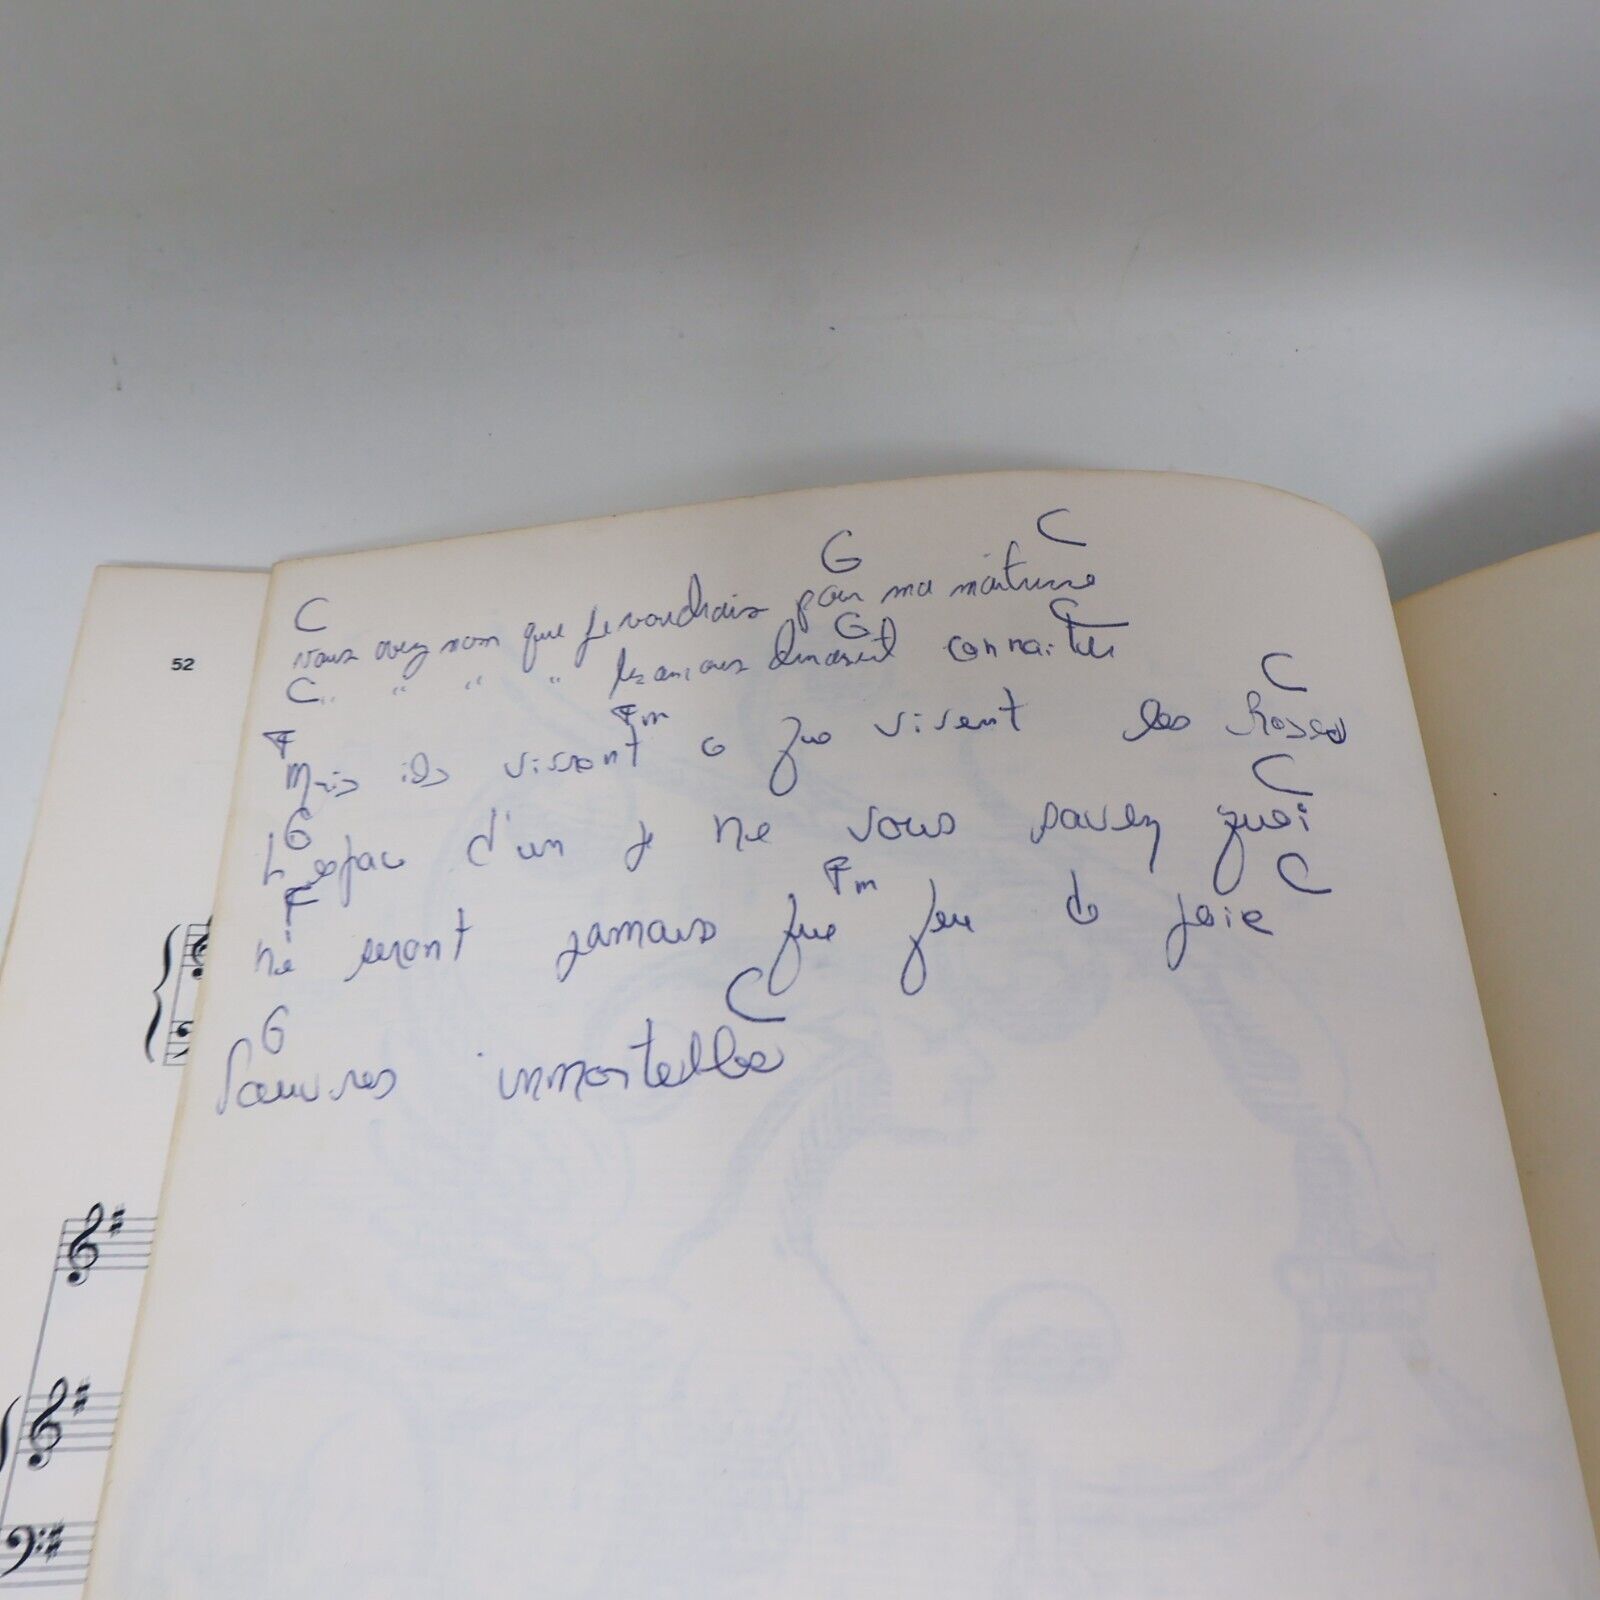 52
C G C
vous avez nom que je voudrais pour ma maitresse
C G C
" " " " les amours devraient connaitre
F Fm C
Mais ils vivront ce que vivent les Roses
G C
L'espace d'un je ne vous savez quoi
F Fm C
ne seront jamais que feu de joie
G C
Pauvres immortelles